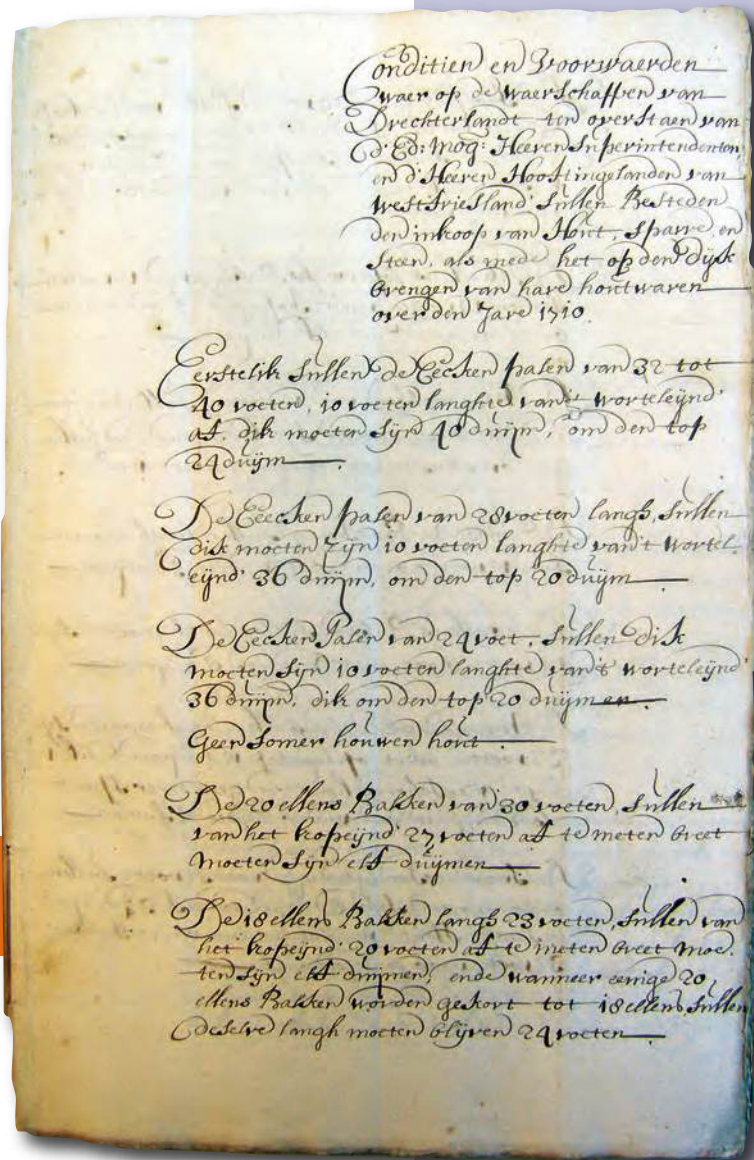 Conditien en Voorwaerden
waer op de waerschappen van
Drechterlandt ten overstaen van
d'Ed: Mog: Heeren Superintendenten,
en d'Heeren Hooftingelanden van
Westfriesland sullen Besteden
den inkoop van Hout, sparre, en
steen, als mede het op den dijk
brengen van hard houtwaren
over den Jare 1710.
Eerstelik sullen de Eecken palen van 32 tot
40 voeten, 10 voeten langhte van't worteleijnd
af, dik moeten sijn 40 duijm, om den top
24 duijm
De Eecken palen van 28 voeten langh, sullen
dik moeten zijn 10 voeten langhte van't wortel-
eijnd 36 duijm, om den top 20 duijm
De Eecken Palen van 24 voet, sullen dik
moeten sijn 10 voeten langhte van't worteleijnd
36 duijm, dik om den top 20 duijmen.
Geen somer houwen hout
De 20 ellens Balken van 30 voeten, sullen
van het kopeijnd 27 voeten af te meten breet
moeten sijn elf duijmen
De 18 ellens Balken langh 23 voeten, sullen van
het kopeijnd 20 voeten af te meten breet moe-
ten sijn elf duijmen, ende wanneer eenige 20
ellens Balken worden gekort tot 18 ellens sullen
deselve langh moeten blijven 24 voeten